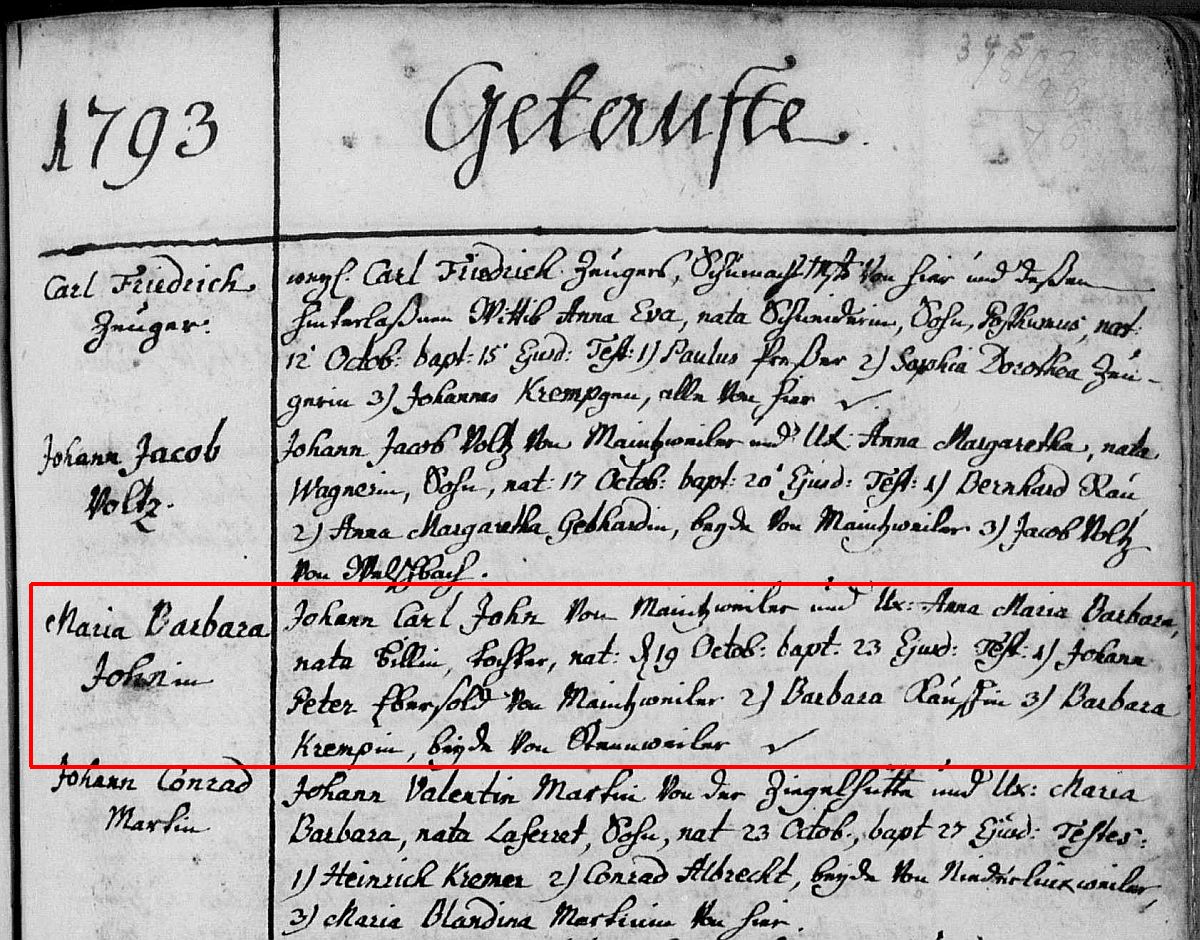 1793
Getaufte
Carl Friedrich
Zeuger.
weyl. Carl Friedrich Zeugers, Schumach von hier und deßen
hinterlaßnen Wittib Anna Eva, nata Schneiderin, Sohn, Posthumus, nat:
12 Octob: bapt: 15 Ejusd: Test: 1) Paulus Preßer 2) Sophia Dorothea Zeu-
gerin 3) Johannes Krempgen, alle von hier
Johann Jacob
Voltz.
Johann Jacob Voltz von Maintzweiler und Ux: Anna Margaretha, nata
Wagnerin, Sohn, nat: 17 Octob: bapt: 20 Ejusd: Test: 1) Bernhard Rau
2) Anna Margaretha Gebhardin, beyde von Maintzweiler 3) Jacob Voltz
von
Maria Barbara
Johnin
Johann Carl John von Maintzweiler und Ux: Anna Maria Barbara,
nata Tochter, nat: 19 Octob: bapt: 23 Ejusd: Test: 1) Johann
Peter Ebersold von Maintzweiler 2) Barbara 3) Barbara
Krempin, beyde von
Johann Conrad
Martin
Johann Valentin Martin von der Ziegelhütte und Ux: Maria
Barbara, nata Laferret, Sohn, nat 23 Octob:, bapt 27 Ejusd: Testes:
1) Heinrich Kremer 2) Conrad Albrecht, beyde von Niederlinxweiler,
3) Maria Blandina Martinin von hier.